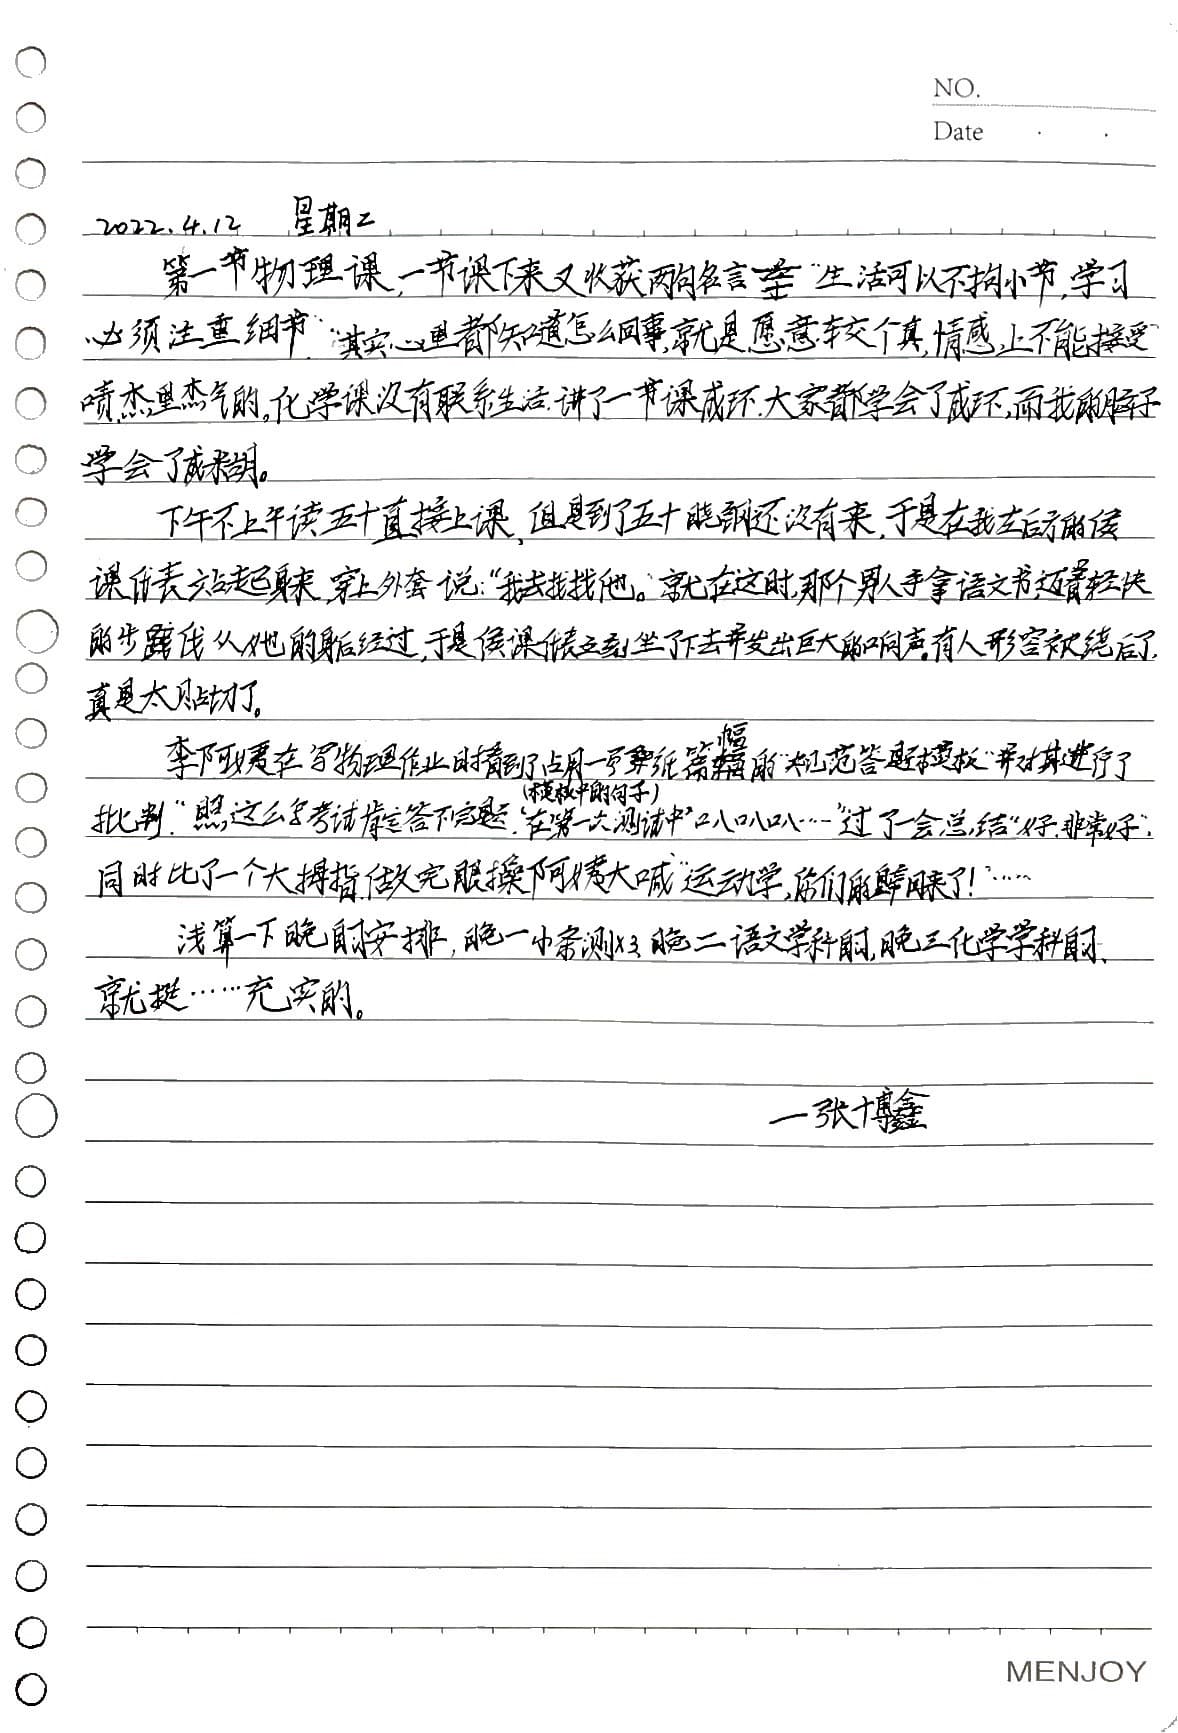 NO.
Date
2022.4.12 星期二
第一节物理课,一节课下来又收获两句名言"生活可以不拘小节,学习
必须注重细节""其实心里都知道怎么回事,就是愿意较个真,情感上不能接受"
啧杰里杰气的。化学课没有联系生活.讲了一节课成环.大家都学会了成环,而我的脖子
学会了成糊。
下午不上午读五十直接上课,但是到了五十晓钢还没有来,于是在我左后方的侯
课代表站起身来穿上外套说:"我去找找他。"就在这时,那个男人手拿语文书迈着轻快
的步伐从他的身后经过,于是侯课代表立刻坐了下去并发出巨大的响声。有人形容被绕后了,
真是太贴切了。
李阿姨在写物理作业时看到了占用一页纸篇幅的"规范答题模板"并对其进行了
批判."照这么写考试肯定答不完题.'在第一次测试中'(模板中的句子)叭叭叭……"过了一会总结"好.非常好".
同时比了一个大拇指.做完眼操阿姨大喊"运动学,你们的归来了!"……
浅算一下晚自安排,晚一小条测x3晚二语文学科自,晚三化学学科自.
就挺……充实的。
—张博鑫
MENJOY